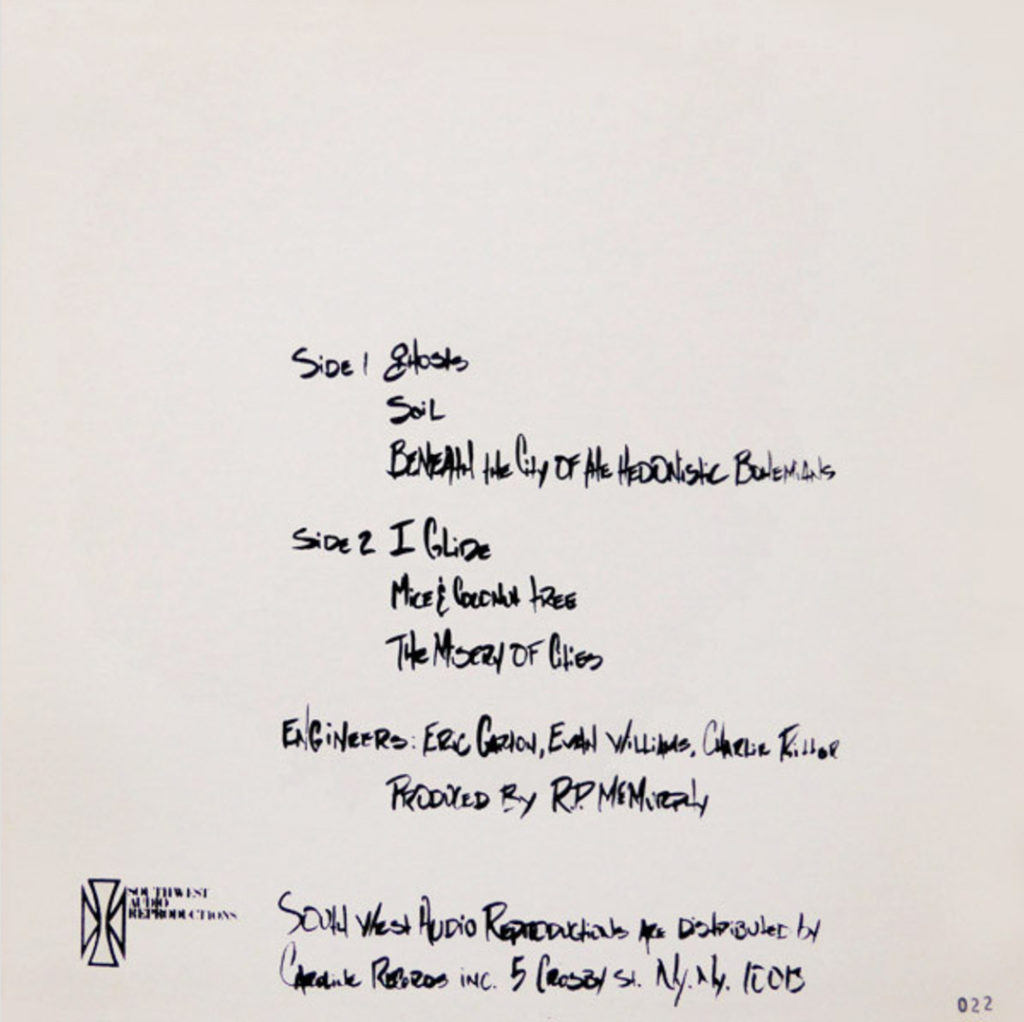 Side 1 Ghosts
Soil
Beneath the City of the Hedonistic Bohemians
Side 2 I Glide
Mice & Coconut Tree
The Misery of Cities
Engineers: Eric Evan Williams, Charlie
Produced By R.P. McMurphy
SOUTHWEST
AUDIO
REPRODUCTIONS
South West Audio Reproductions Are Distributed by
Caroline Records inc. 5 Crosby St. N.y. Ny. 10013
022